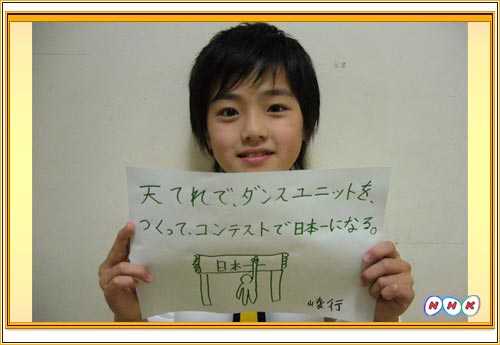 天てれで、ダンスユニットを、
つくって、コンテストで日本一になる。
日本一
行
NHK